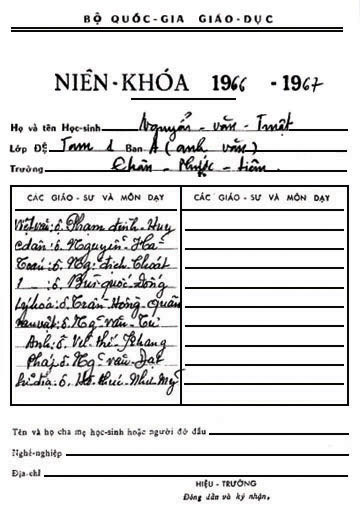 BỘ QUỐC-GIA GIÁO-DỤC
NIÊN-KHÓA 1966 - 1967
Họ và tên Học-sinh Nguyễn - văn - Thuật
Lớp ĐỆ Tam 1 Ban A (anh văn)
Trường Chân - Phước - Liêm
CÁC GIÁO - SƯ VÀ MÔN DẠY CÁC GIÁO - SƯ VÀ MÔN DẠY
Việt văn: ô. Phạm đình - Huy
ô. Nguyễn - Hà
Toán: ô. Ng. đích Choát
ô. Bùi quốc Đống
Lý hoá: ô. Trần - Hồng - Quân
Vạn vật: ô. Ng. văn - Tư
Anh: ô. thế - Khang
Pháp: ô. Ng. văn - Đạt
Sử địa: ô. Hồ thúc - Như Mỹ
Tên và họ cha mẹ học-sinh hoặc người đỡ đầu
Nghề-nghiệp
Địa-chỉ
HIỆU - TRƯỞNG
Đóng dấu và ký nhận,